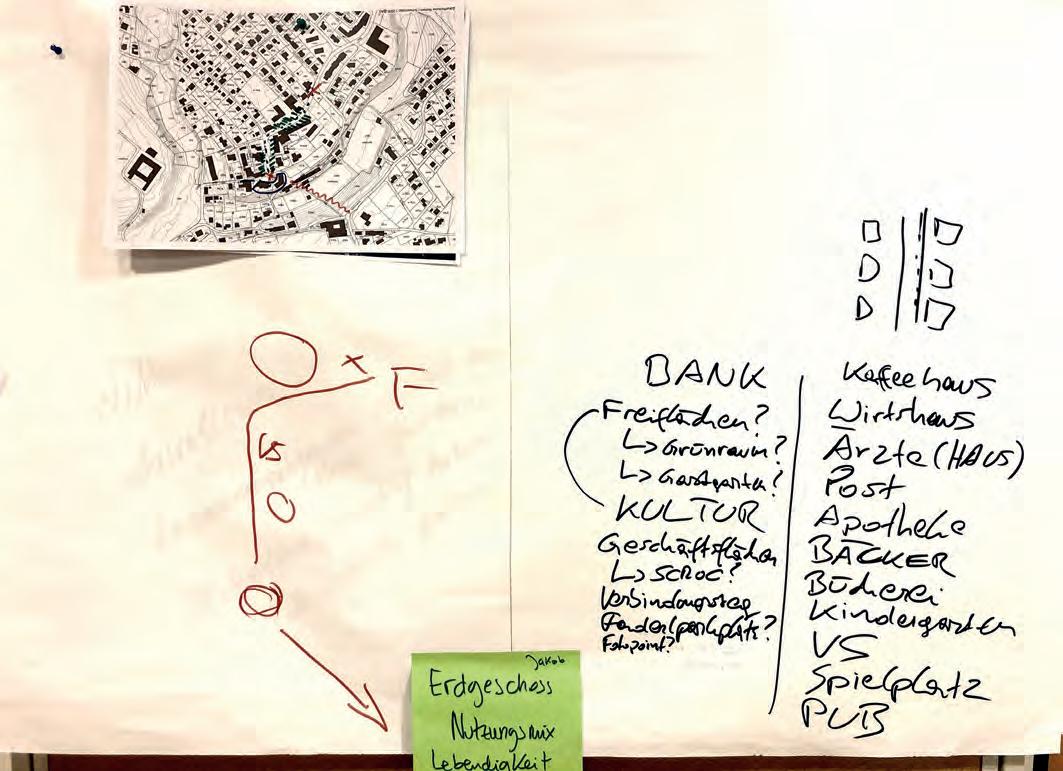 F
VS
BANK
Freiflächen?
↳ Grünraum?
↳ Gastgarten?
KULTUR
Geschäftsflächen
Verbindungsweg
Fotopoint?
Kaffeehaus
Wirtshaus
Ärzte (HAUS)
Post
Apotheke
BÄCKER
Bücherei
Kindergarten
VS
Spielplatz
PUB
Jakob
Erdgeschoss
Nutzungsmix
Lebendigkeit